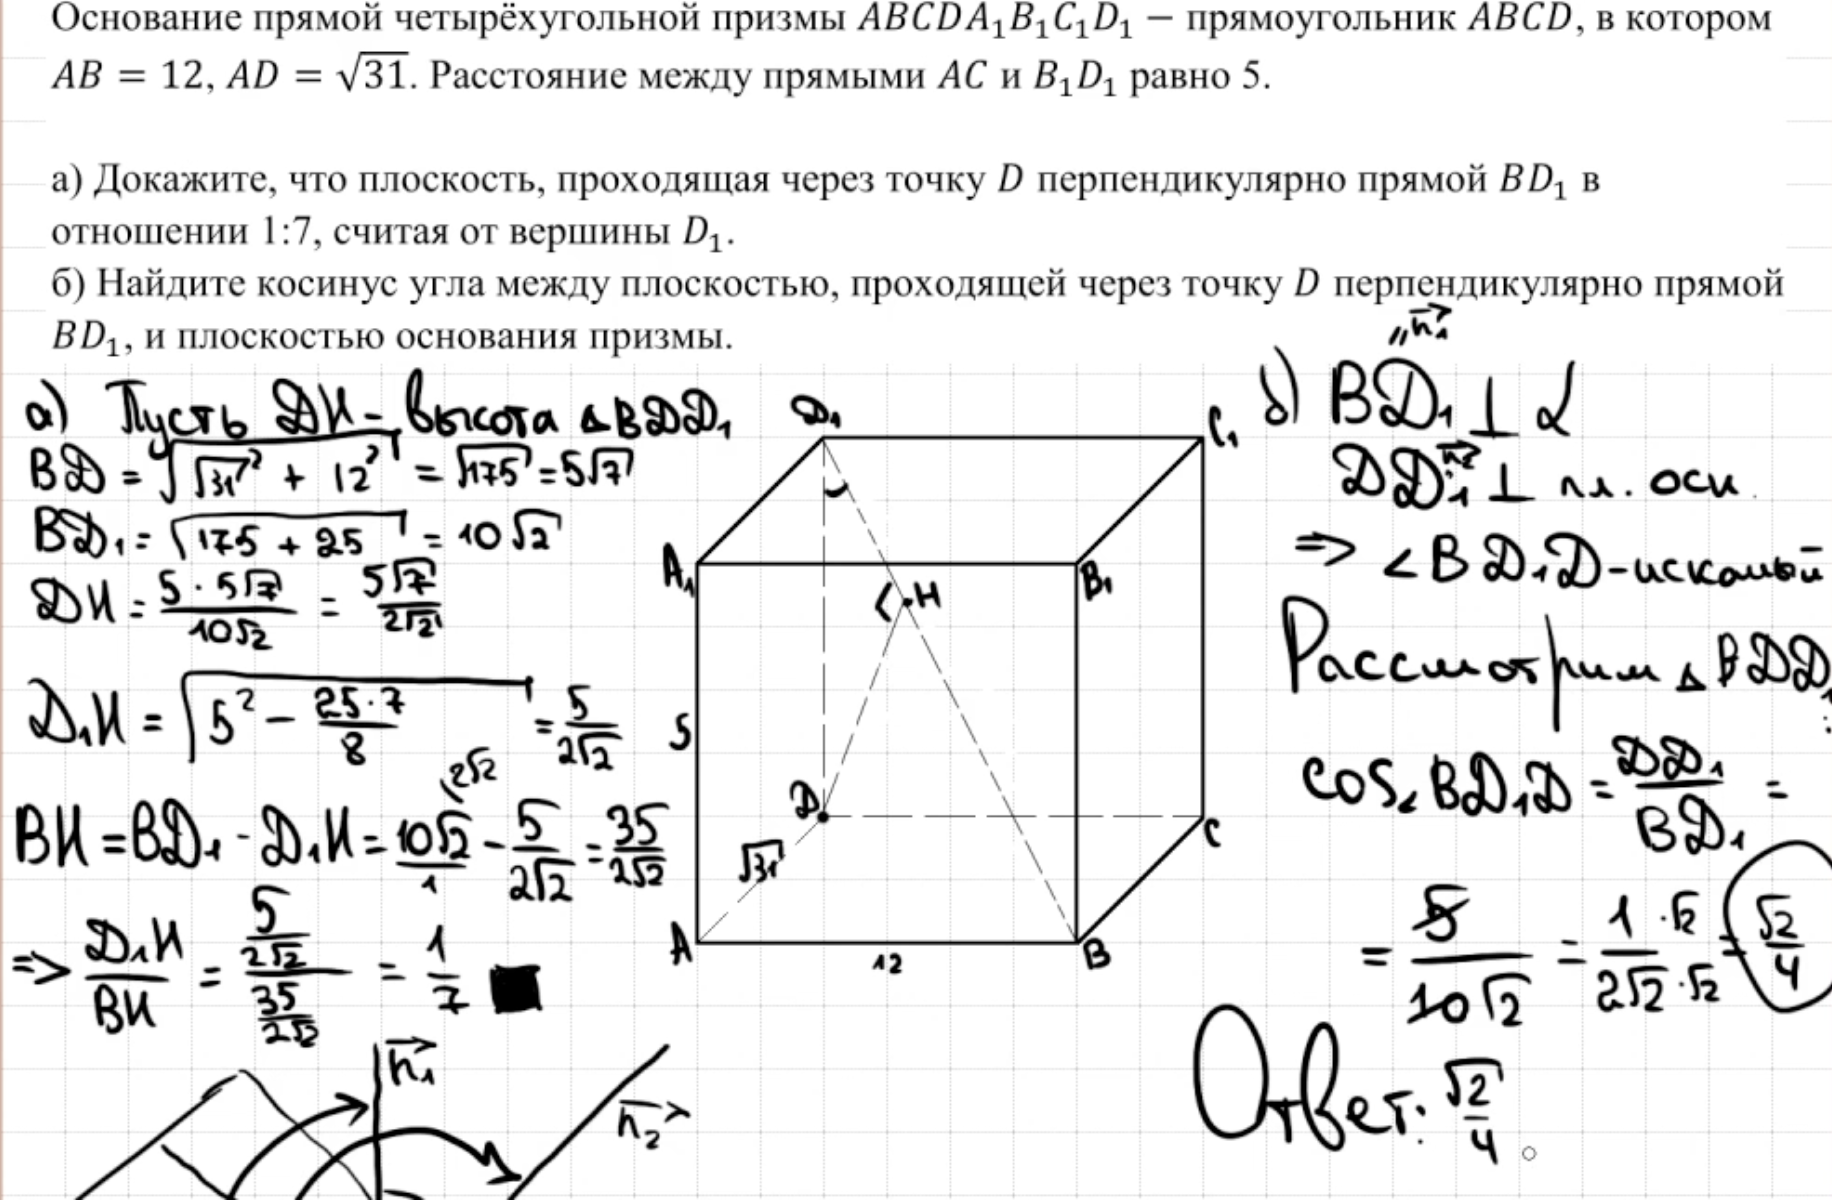 Основание прямой четырёхугольной призмы ABCDA₁B₁C₁D₁ − прямоугольник ABCD, в котором
AB = 12, AD = √31. Расстояние между прямыми AC и B₁D₁ равно 5.
а) Докажите, что плоскость, проходящая через точку D перпендикулярно прямой BD₁ в
отношении 1:7, считая от вершины D₁.
б) Найдите косинус угла между плоскостью, проходящей через точку D перпендикулярно прямой
BD₁, и плоскостью основания призмы.
а) Пусть DH - высота ΔBDD₁
BD = √(√31² + 12²) = √175 = 5√7
BD₁ = √(175 + 25) = 10√2
DH = (5 · 5√7)/(10√2) = 5√7/(2√2)
D₁H = √(5² − (25·7)/8) = 5/(2√2)
BH = BD₁ - D₁H = 10√2/1 (2√2 − 5/(2√2) = 35/(2√2)
=> D₁H/BH = (5/(2√2))/(35/(2√2)) = 1/7 ■
n₁
n₂
D₁
C₁
A₁
B₁
H
5
D
C
√31
A
12
B
"n₁
б) BD₁ ⊥ α
n₂
DD₁ ⊥ пл. осн.
=> ∠BD₁D - искомый
Рассмотрим ΔBDD₁:
cos∠BD₁D = DD₁/BD₁ =
= 5/(10√2) = (1·√2)/(2√2·√2) = √2/4
Ответ: √2/4